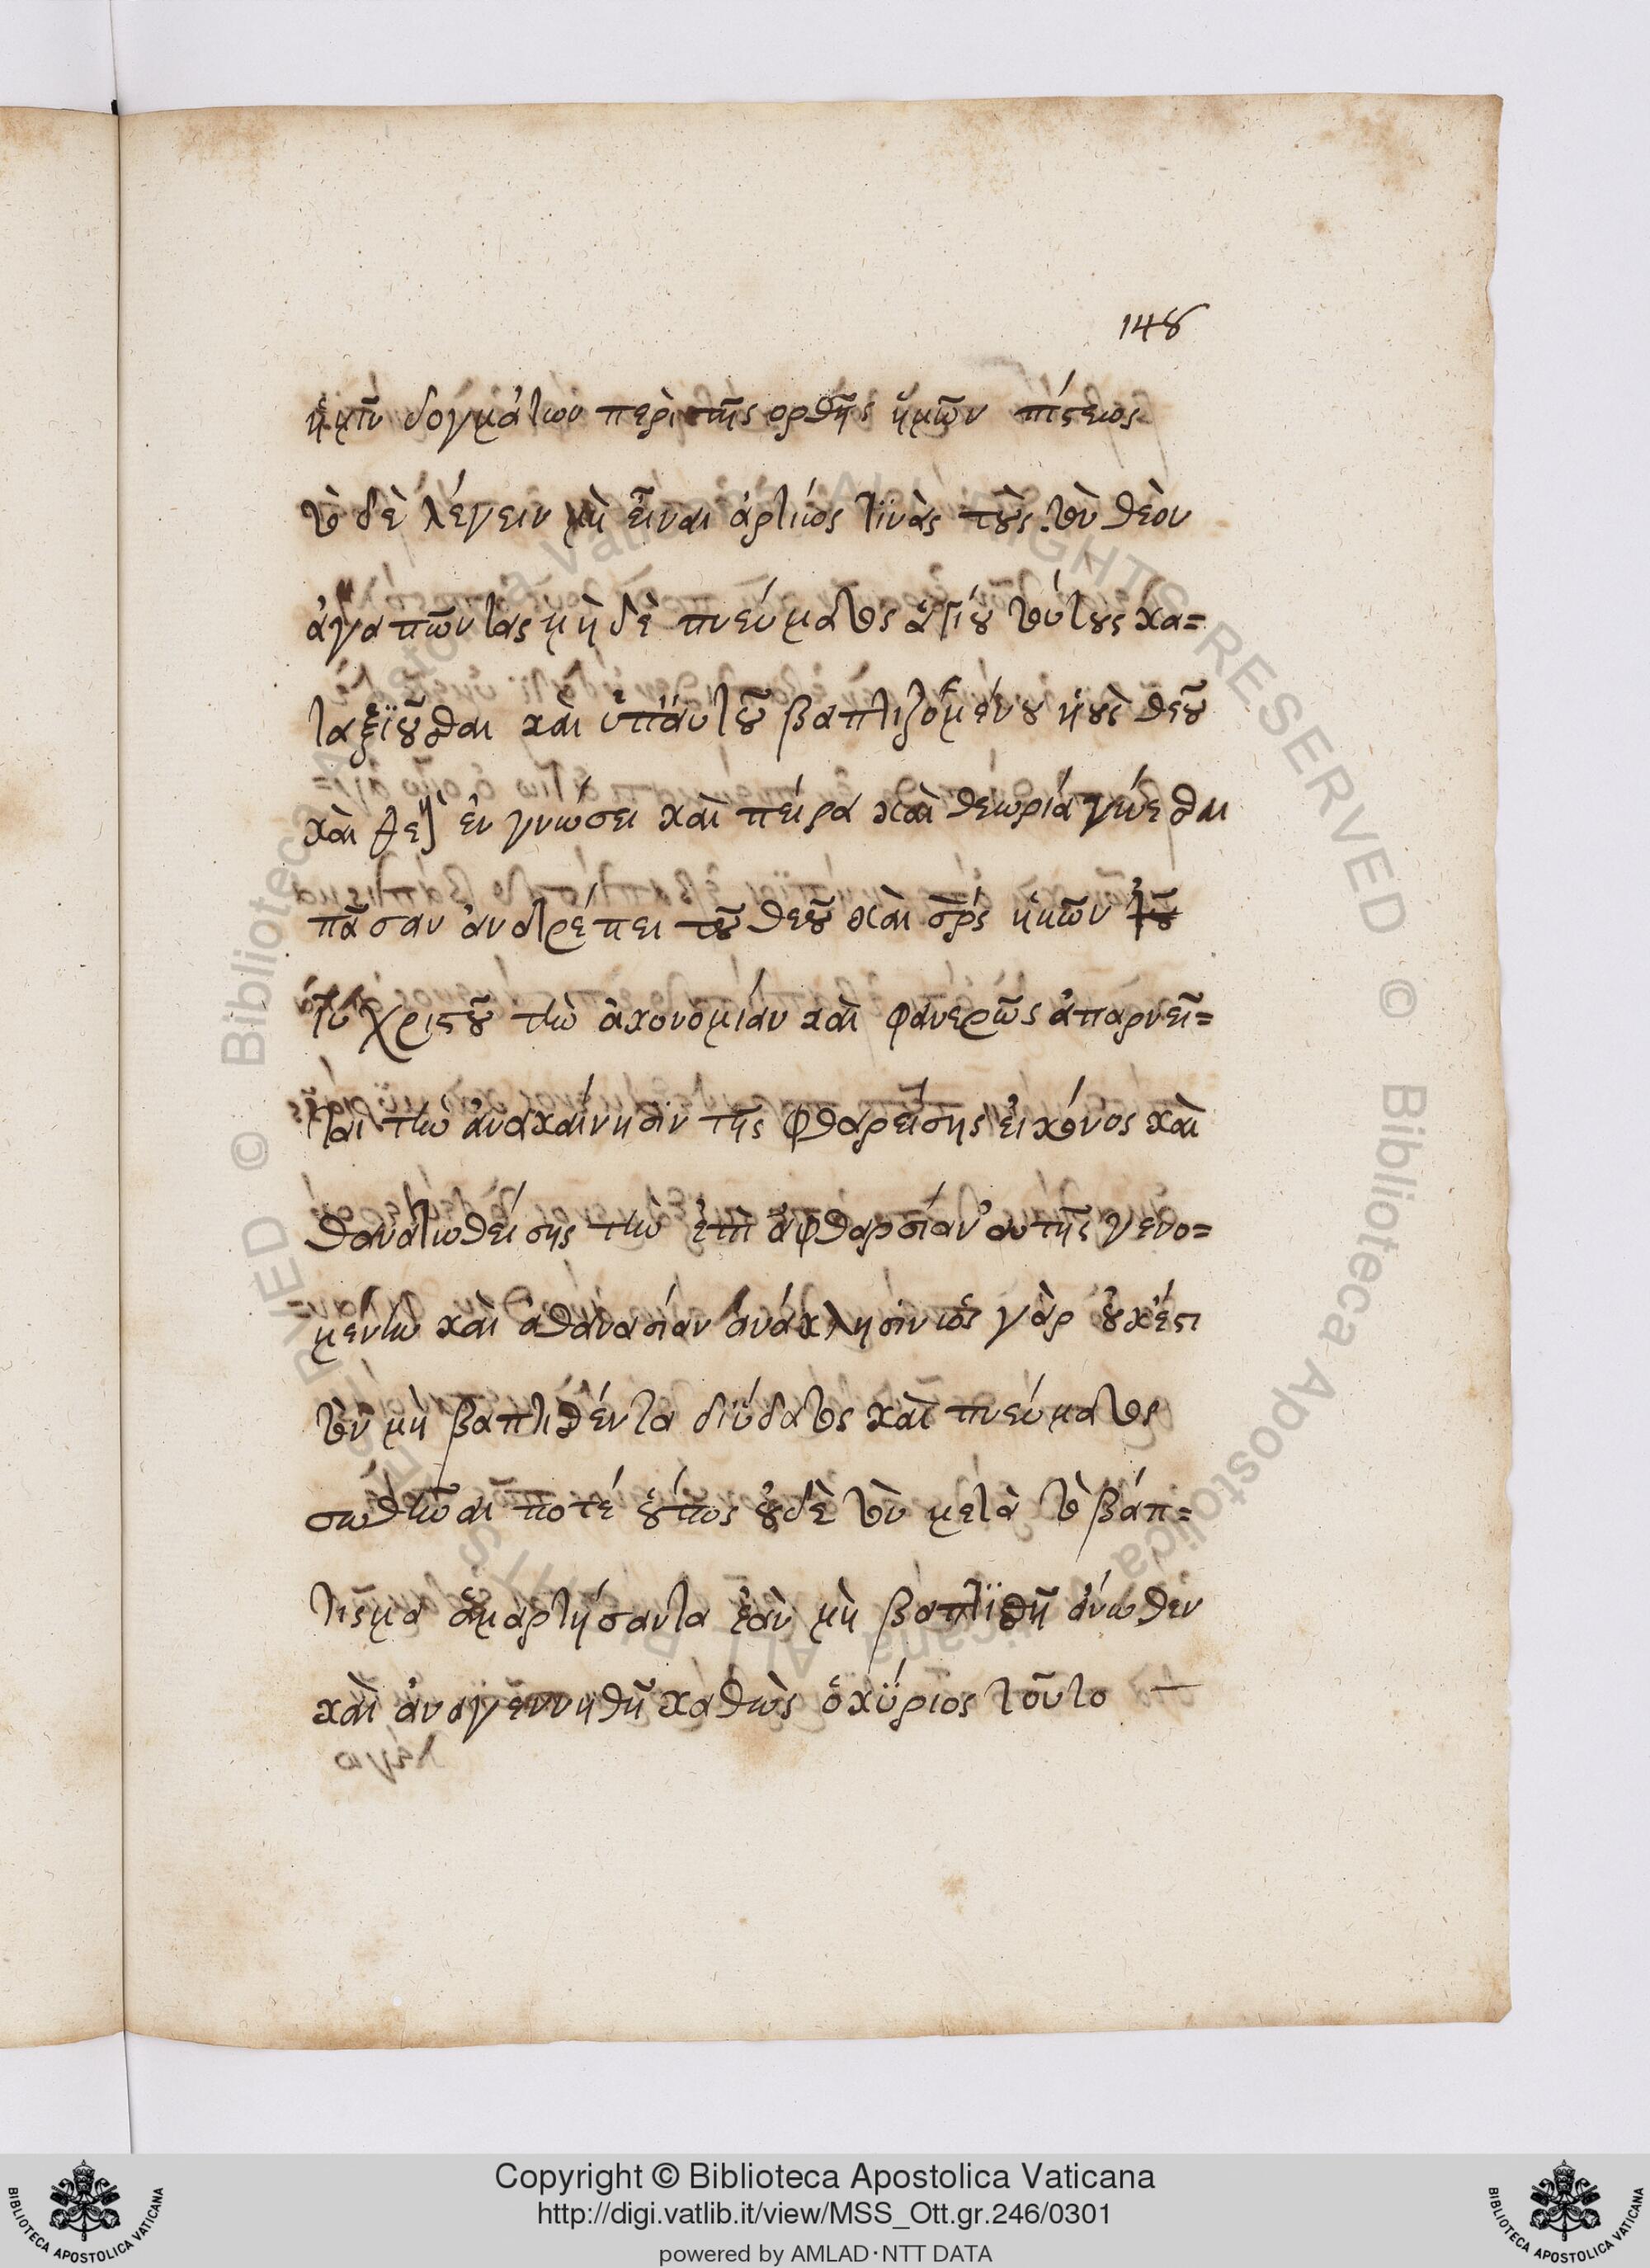 148
ἡμῖν δογμάτων περὶ τῆς ορθῆς ἡμῶν πίστεως
τὸ δὲ λέγειν μὴ εἶναι ἀρτίως τινὰς τοὺς τὸν θεὸν
ἀγαπῶντας μηδὲ πνεύματος ἁγίου τούτους κα=
ταξιοῦσθαι καὶ ὑπ' αυτοῦ βαπτιζομένου υἱοὺς θεοῦ
καὶ ἐν γνώσει καὶ πείρα καὶ θεωρία γίνεσθαι
πᾶσαν ἀνατρέπει τοῦ θεοῦ καὶ σρς ἡμῶν ἰυ
χριστοῦ τὴν οἰκονομίαν καὶ φανερῶς ἀπαρνεῖ=
ται τὴν ἀνακαίνησιν τῆς φθαρείσης εἰκόνος καὶ
θανατωθείσης τὴν ἐπὶ ἀφθαρσίαν αυτῆς γενο=
μένην καὶ ἀθανασίαν ἀνάκλησιν ὡς γὰρ οὐκ ἔστι
τὸν μὴ βαπτισθέντα δι ὕδατος καὶ πνεύματος
σωθῆναι ποτέ οὕτως οὐδὲ τὸν μετὰ τὸ βάπ=
τισμα ἁμαρτήσαντα ἐὰν μὴ βαπτισθῆ ἄνωθεν
καὶ ἀναγεννηθῆ καθὼς ὁ κύριος τοῦτο
Copyright © Biblioteca Apostolica Vaticana
http://digi.vatlib.it/view/MSS_Ott.gr.246/0301
powered by AMLAD·NTT DATA
BIBLIOTECA APOSTOLICA VATICANA
BIBLIOTECA APOSTOLICA VATICANA